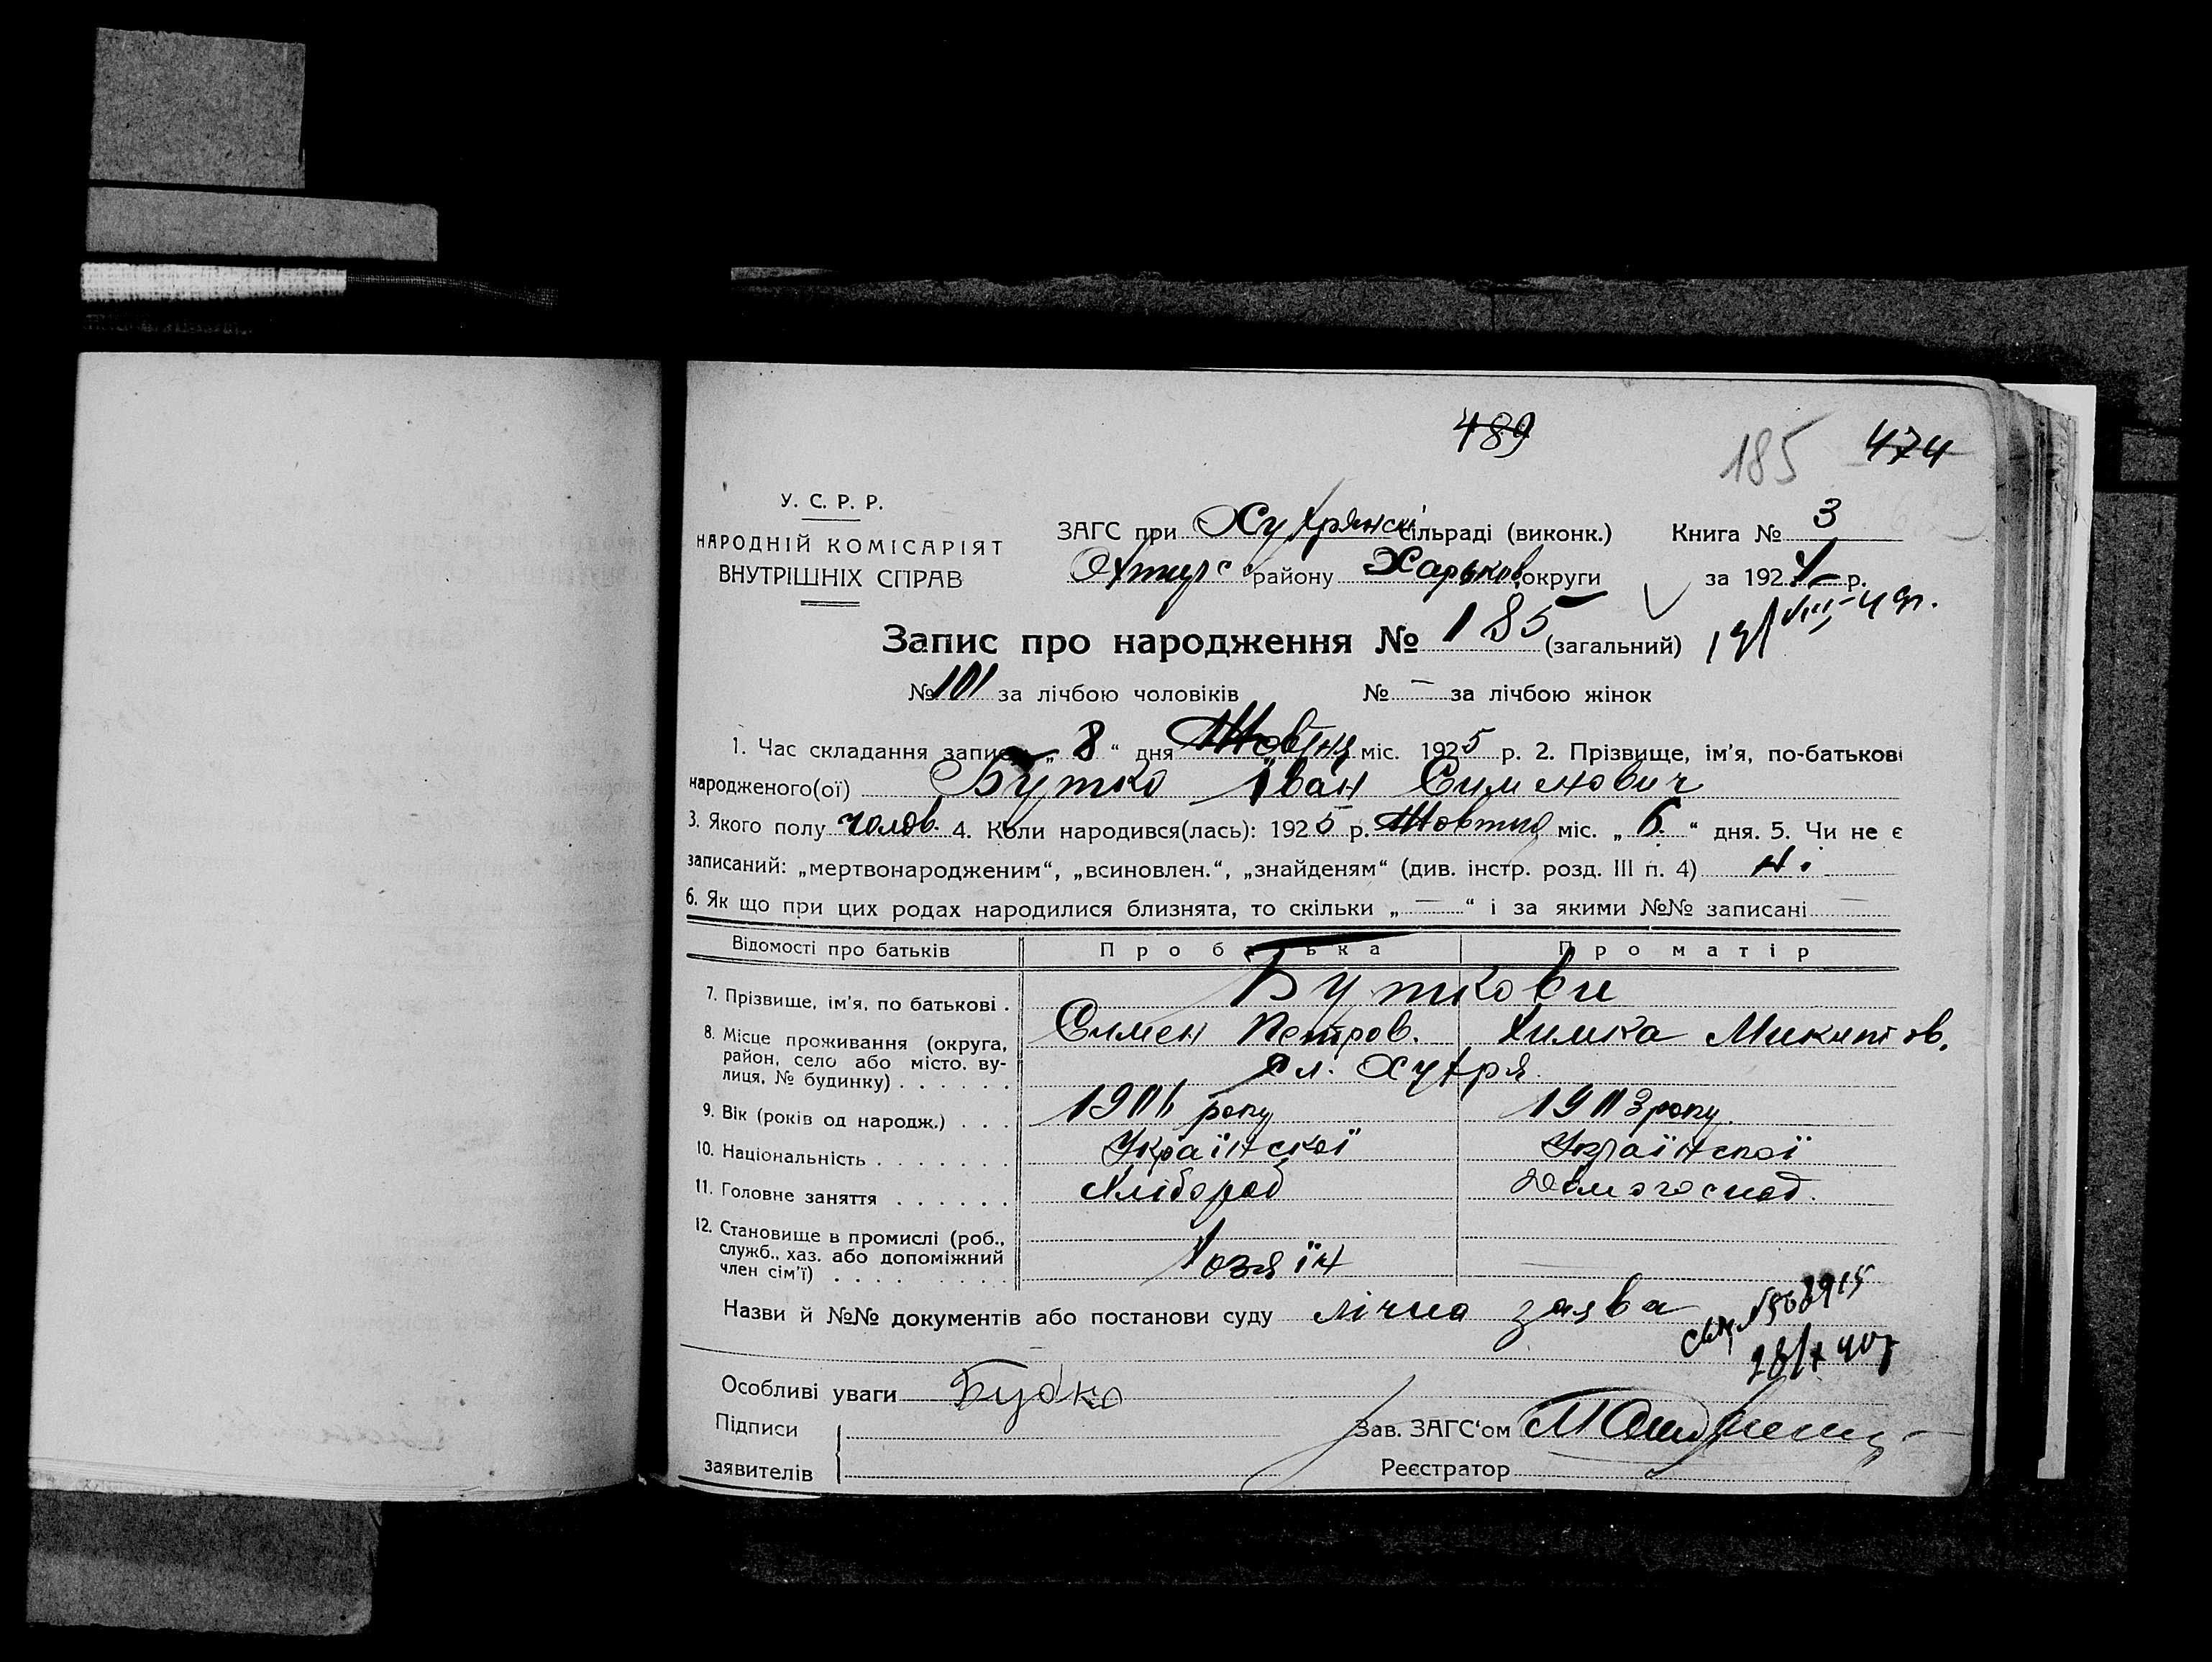 489
185 474
У. С. Р. Р.
НАРОДНІЙ КОМІСАРІЯТ
ВНУТРІШНІХ СПРАВ
ЗАГС при Хухрянск сільраді (виконк.) Книга № 3
Охтирс району Харьков округи за 192 р.
Запис про народження № 185 (загальний)
№ 101 за лічбою чоловіків № — за лічбою жінок
1. Час складання запису „ 8 “ дня Жовтня міс. 1925 р. 2. Прізвище, ім'я, по-батькові
народженого(ої) Бутко Іван Сименович
3. Якого полу чолов. 4. Коли народився(лась): 1925 р. Жовтня міс. „ 6. “ дня. 5. Чи не є
записаний: „мертвонародженим“, „всиновлен.“, „знайденям“ (див. інстр. розд. III п. 4) ні
6. Як що при цих родах народилися близнята, то скільки „ — “ і за якими №№ записані —
Відомості про батьків Про батька Про матір
7. Прізвище, ім'я, по батькові . Буткови
Симен Петров. Химка Микитов.
8. Місце проживання (округа, район, село або місто, ву-
лиця, № будинку) . . . . . . сл. Хухря
9. Вік (років од народж.) . . . року 1903 року.
10. Національність . . . . . . . Українскої Українскої
11. Головне заняття . . . . . . Хлібороб Домогоспод.
12. Становище в промислі (роб.,
служб., хаз. або допоміжний
член сім'ї) . . . . . . . . . Хозяїн —
Назви й №№ документів або постанови суду лічна заява
Особливі уваги Будко
Підписи
заявителів
Зав. ЗАГС'ом
Реєстратор